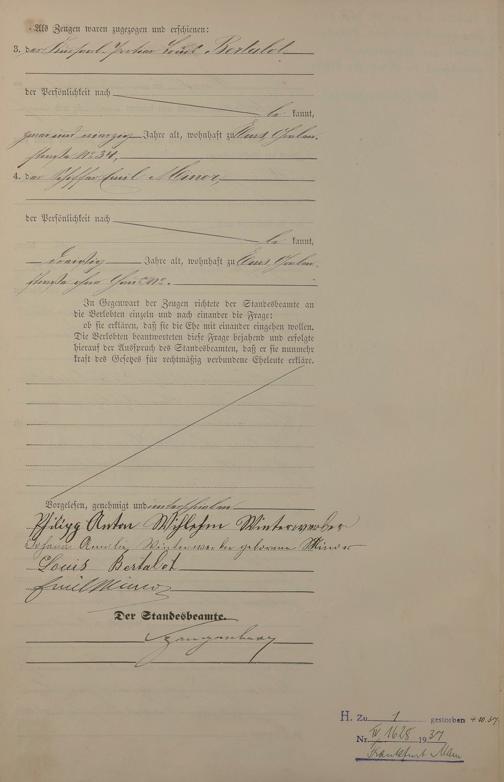 Als Zeugen waren zugezogen und erschienen:
3. der Louis Bertalot
der Persönlichkeit nach
be kannt,
Jahre alt, wohnhaft zu Ems
N° 34,
4. der Emil Minor,
der Persönlichkeit nach
be kannt,
dreißig Jahre alt, wohnhaft zu Ems
ohne N°.
In Gegenwart der Zeugen richtete der Standesbeamte an
die Verlobten einzeln und nach einander die Frage:
ob sie erklären, daß sie die Ehe mit einander eingehen wollen.
Die Verlobten beantworteten diese Frage bejahend und erfolgte
hierauf der Ausspruch des Standesbeamten, daß er sie nunmehr
kraft des Gesetzes für rechtmäßig verbundene Eheleute erkläre.
Vorgelesen, genehmigt und unterschrieben
Philipp Anton Wilhelm Winterwerber
Johanna Amalie Winterwerber geborene Minor
Louis Bertalot
Emil Minor
Der Standesbeamte.
H. Zu 1 gestorben
Nr. IV 1628 1937
Frankfurt Main